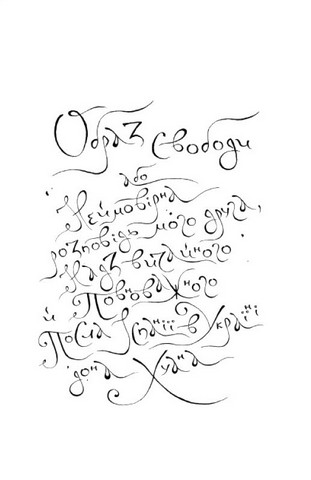 Образ свободи
або
Неймовірна
розповідь мого друга,
Надзвичайного
й Повноважного
Посла Іспанії в Україні
дона Хуана